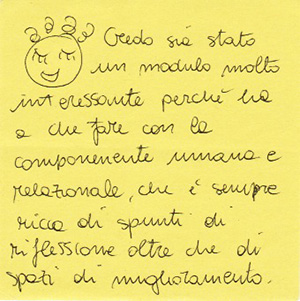 Credo sia stato
un modulo molto
interessante perchè ha
a che fare con la
componente umana e
relazionale, che è sempre
ricca di spunti di
riflessione oltre che di
spazi di miglioramento.